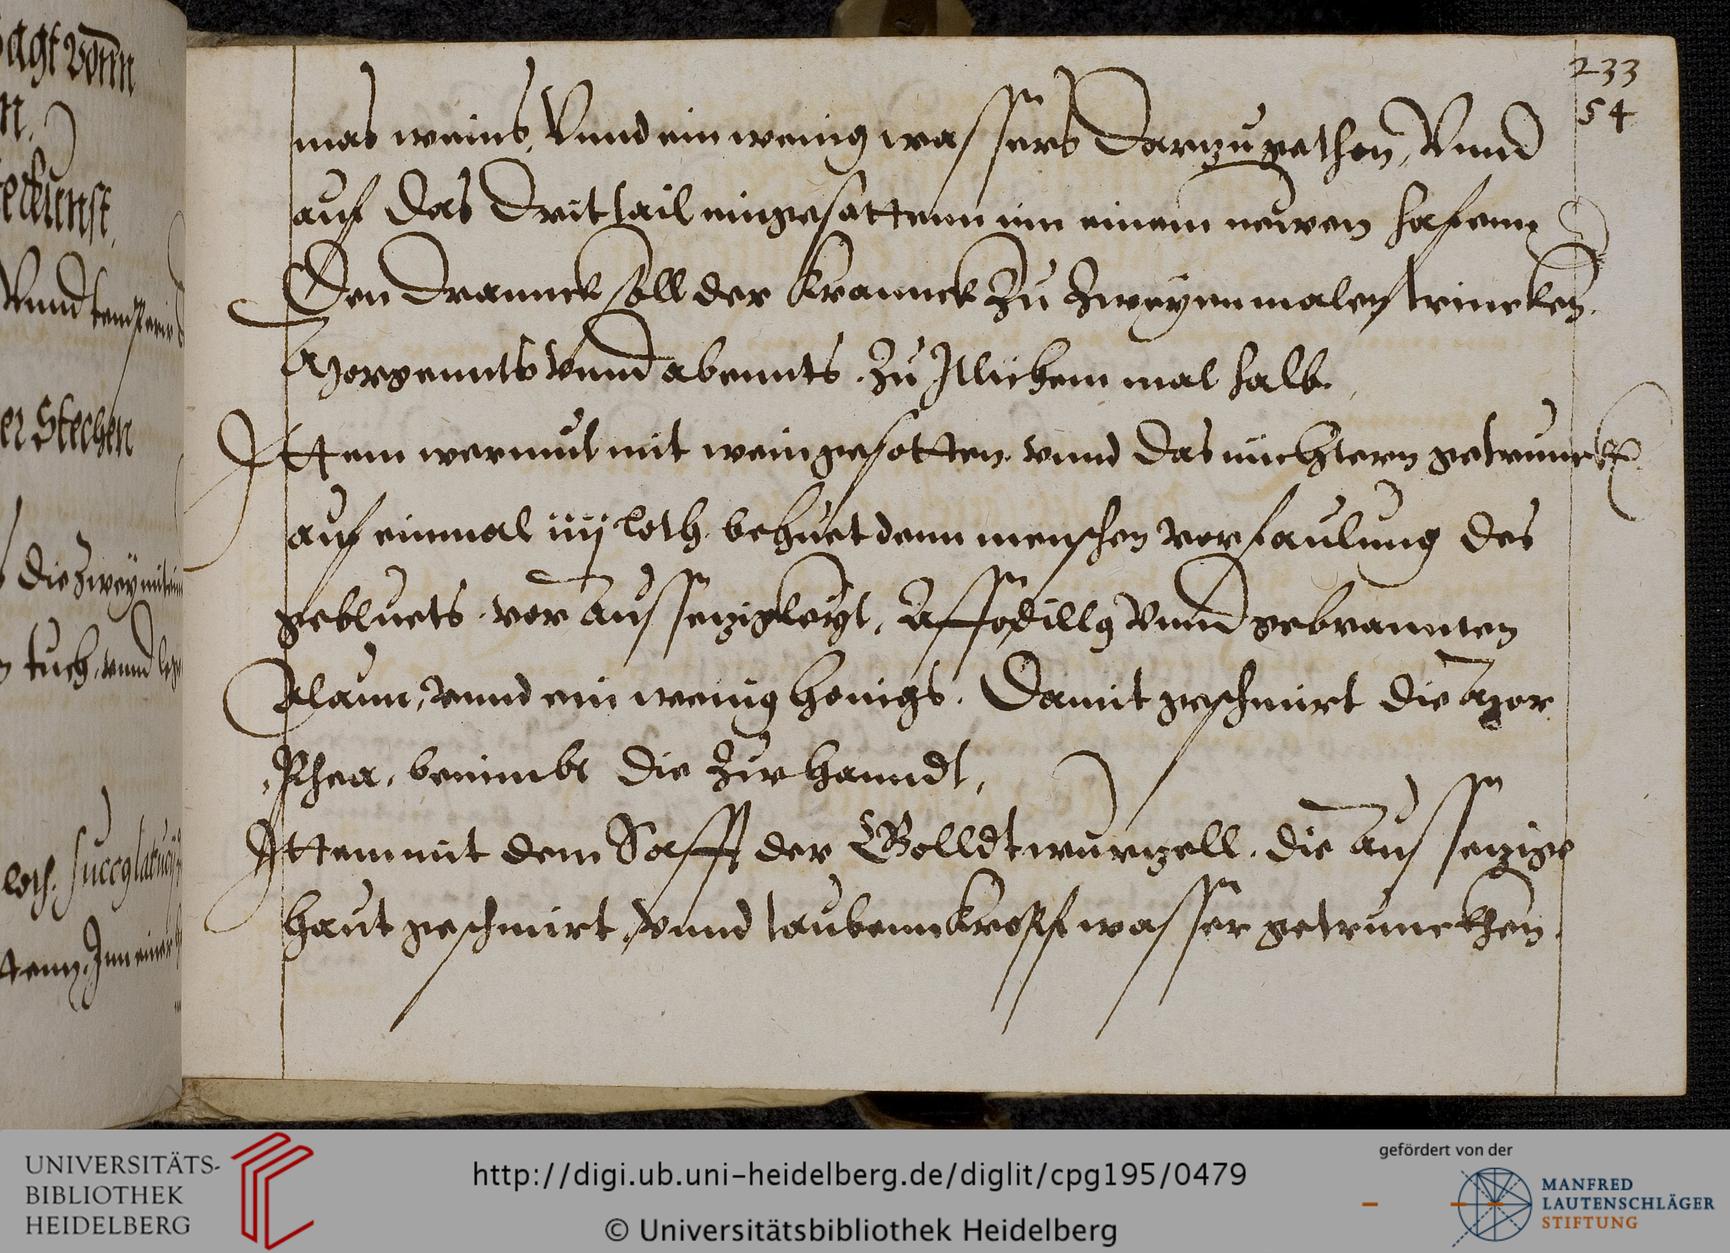 233
54
mas weins, Vnnd ein wenig wassers Darzu gethon, Vnnd
auf das drithail eingesottenn inn einem newen hafenn
Den drannck soll der Kranck zu zweyenmalen trincken
Morgennts vnnd abennts. zu Itlichem mal halb.
Ittem wermut mit wein gesotten. vnnd das nüchtern getrunckh
auf einmal iiij loth. behuet denn menschen vor faulung des
gebluets. vor Aussezigkeyt, Affodillg Vnnd gebrannten
Alaun, vnnd ein wenig honigs. Damit geschmirt die Mor
Phea. benimbt die zur hanndt,
Ittem mit dem Safft der Golldtwurzell. die Aussezige
haut geschmirt, vnnd taubennkropf wasser getrunckhen.
agt vonn
n.
Vnnd
er Stechen
die zwey
tuch, vnnd
loth.
Inn einer
UNIVERSITÄTS-
BIBLIOTHEK
HEIDELBERG
http://digi.ub.uni-heidelberg.de/diglit/cpg195/0479
© Universitätsbibliothek Heidelberg
gefördert von der
MANFRED
LAUTENSCHLÄGER
STIFTUNG